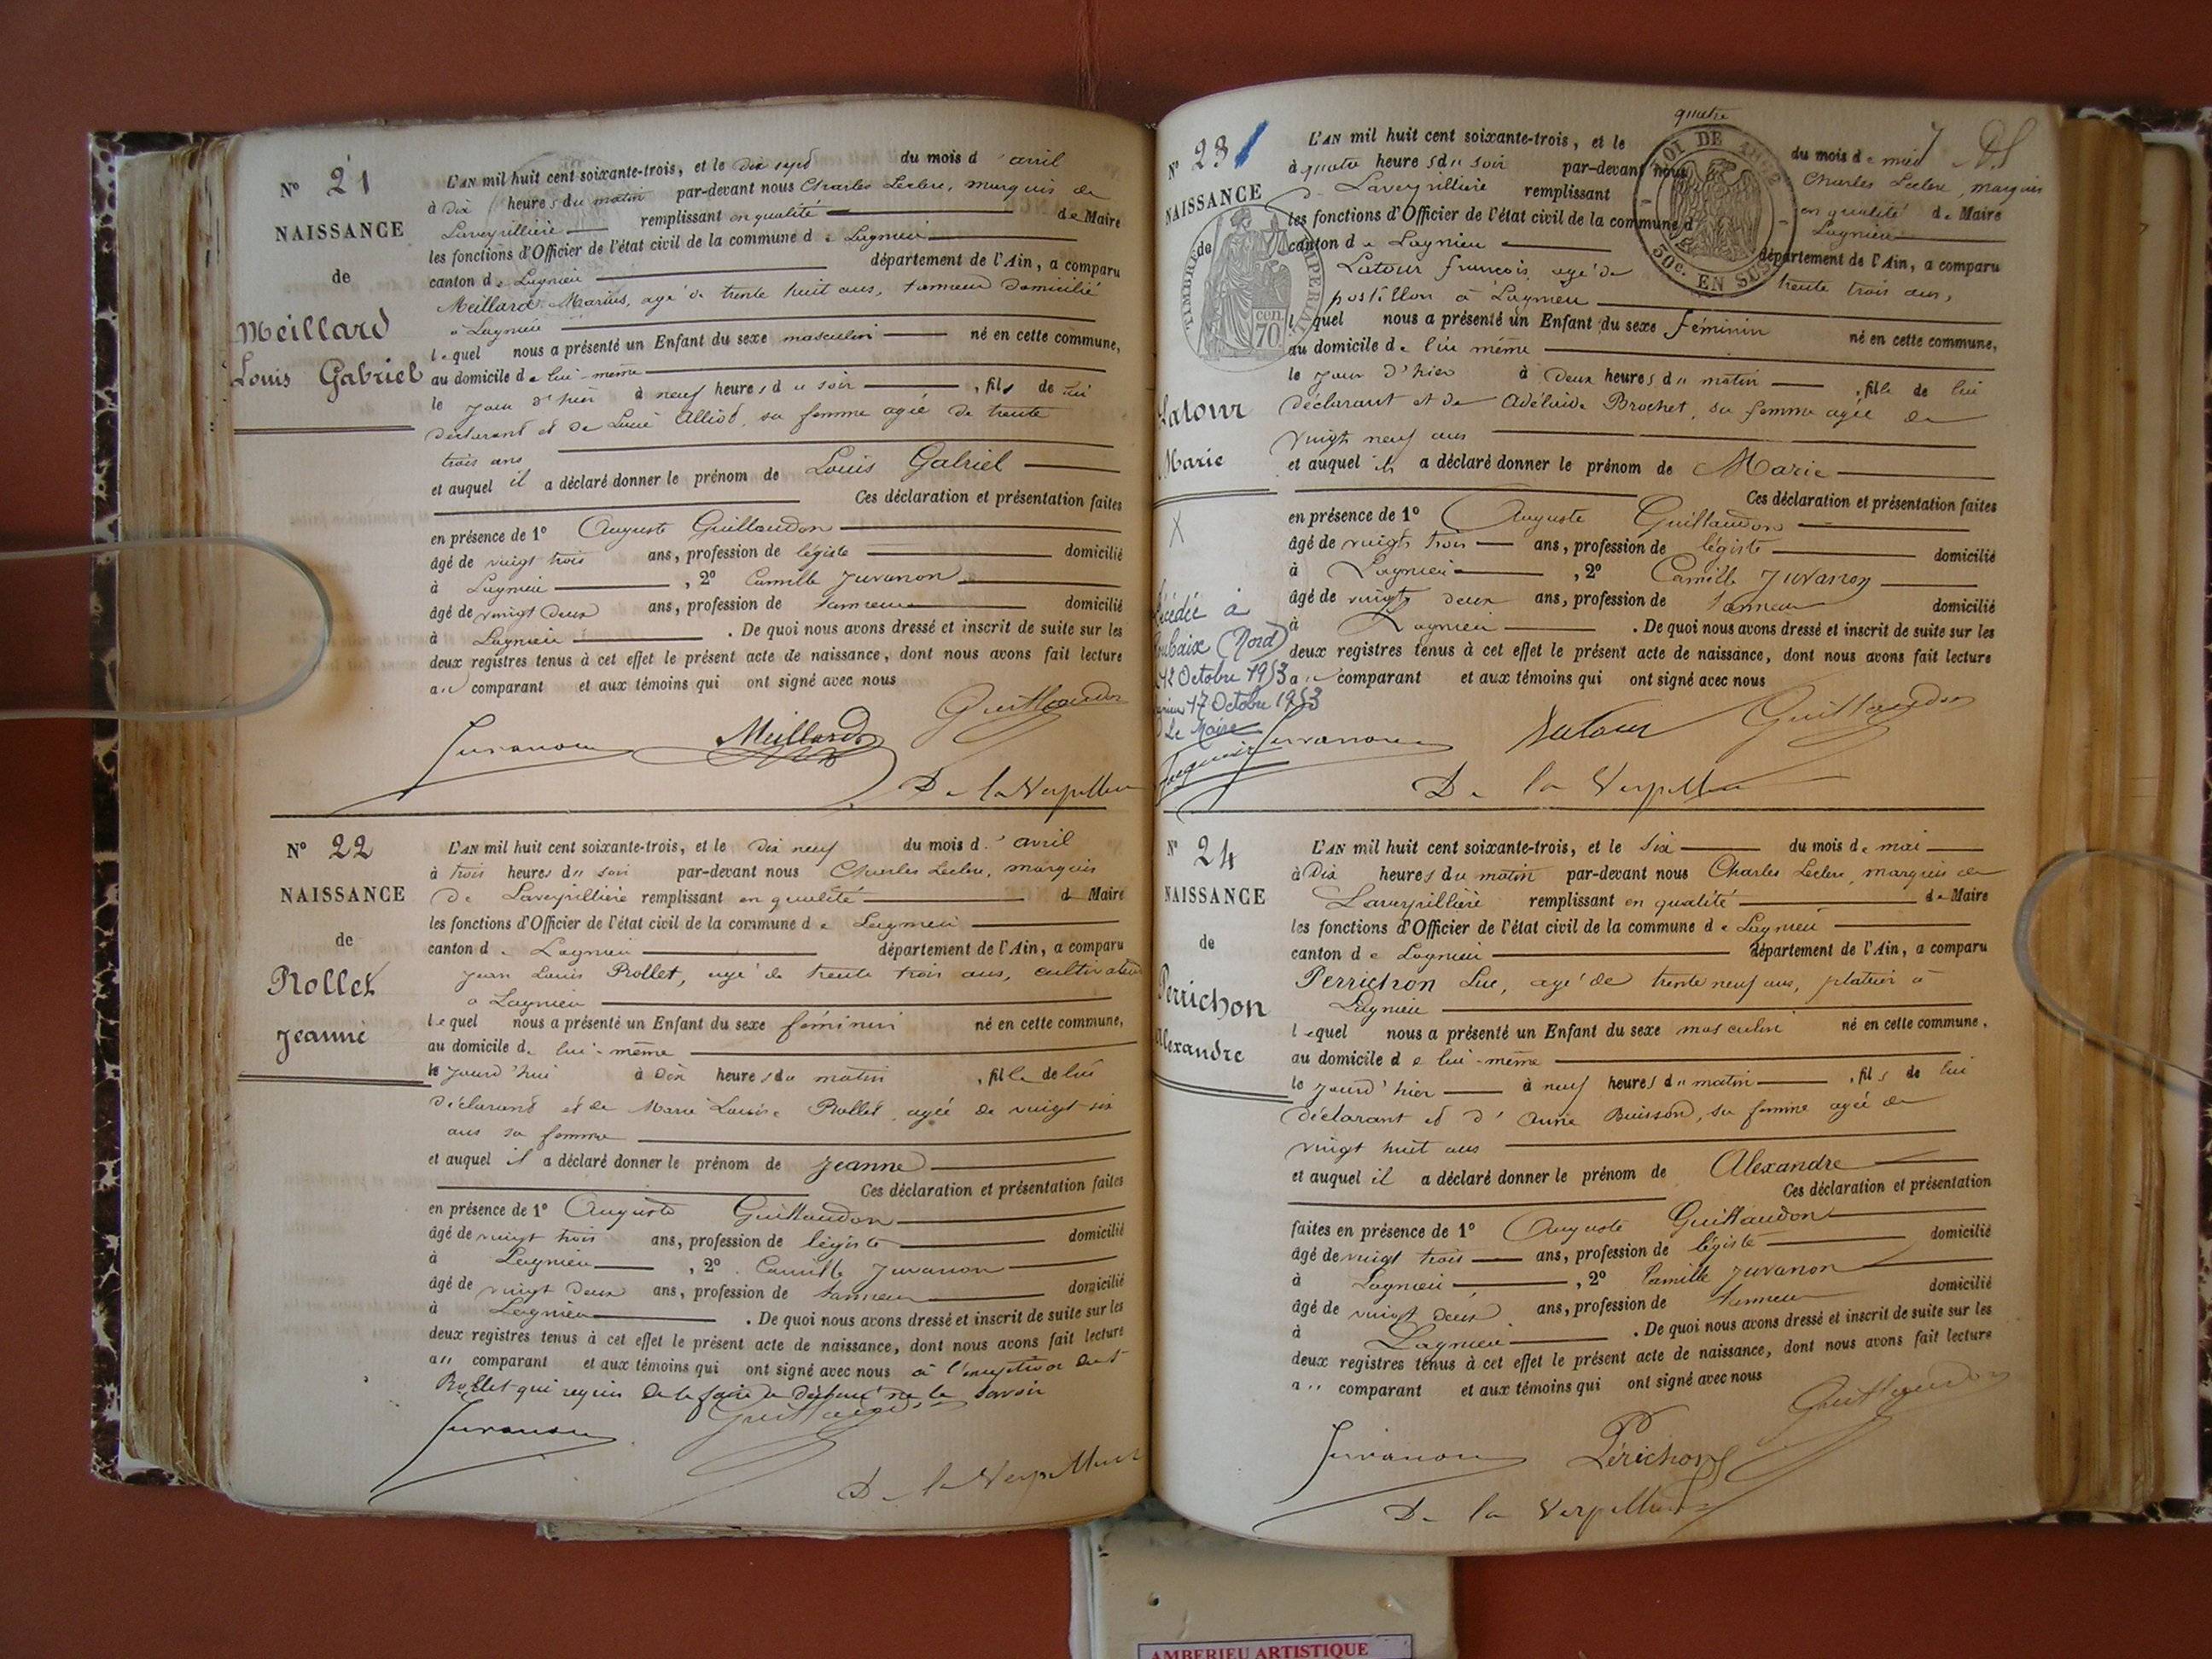 N° 21
NAISSANCE
de
Meillard
Louis Gabriel
L'AN mil huit cent soixante-trois, et le dix sept du mois d'avril
à dix heures du matin par-devant nous Charles Leclerc, marquis de
Laverpillière remplissant en qualité de Maire
les fonctions d'Officier de l'état civil de la commune de Lagnieu
canton de Lagnieu département de l'Ain, a comparu
Meillard Marius, agé de trente huit ans, tanneur domicilié
à Lagnieu
lequel nous a présenté un Enfant du sexe masculin né en cette commune,
au domicile de lui-même
le jour d'hier à neuf heures du soir, fils de lui
déclarant et de Alliod, sa femme agée de trente
trois ans
et auquel il a déclaré donner le prénom de Louis Gabriel
Ces déclaration et présentation faites
en présence de 1° Auguste Guillaudon
âgé de vingt trois ans, profession de légiste domicilié
à Lagnieu, 2° Camille Juvanon
âgé de vingt deux ans, profession de tanneur domicilié
à Lagnieu. De quoi nous avons dressé et inscrit de suite sur les
deux registres tenus à cet effet le présent acte de naissance, dont nous avons fait lecture
au comparant et aux témoins qui ont signé avec nous
Guillaudon
Juvanon Meillard
De la Verpillière
N° 22
NAISSANCE
de
Rollet
Jeanne
L'AN mil huit cent soixante-trois, et le dix neuf du mois d'avril
à trois heures du soir par-devant nous Charles Leclerc, marquis
De Laverpillière remplissant en qualité de Maire
les fonctions d'Officier de l'état civil de la commune de Lagnieu
canton de Lagnieu département de l'Ain, a comparu
Jean Louis Rollet, agé de trente trois ans, cultivateur
à Lagnieu
lequel nous a présenté un Enfant du sexe féminin né en cette commune,
au domicile de lui-même
le jourd'hui à dix heures du matin, fille de lui
déclarant et de Marie Louise Rollet agée de vingt-six
ans sa femme
et auquel il a déclaré donner le prénom de Jeanne
Ces déclaration et présentation faites
en présence de 1° Auguste Guillaudon
âgé de vingt trois ans, profession de légiste domicilié
à Lagnieu, 2° Camille Juvanon
âgé de vingt deux ans, profession de tanneur domicilié
à Lagnieu. De quoi nous avons dressé et inscrit de suite sur les
deux registres tenus à cet effet le présent acte de naissance, dont nous avons fait lecture
au comparant et aux témoins qui ont signé avec nous à l'exception dud
Rollet qui requis de le faire a déclaré ne le savoir
Juvanon Guillaudon
De la Verpillière
N° 23
NAISSANCE
de
Latour
Marie
X
décédée à
Roubaix (Nord)
12 Octobre 1953
17 Octobre 1953
Le Maire
TIMBRE IMPERIAL
cen. 70
LOI DE 1862
50c. EN SUS
L'AN mil huit cent soixante-trois, et le quatre du mois de mai
à quatre heures du soir par-devant nous Charles Leclerc, marquis
Laverpillière remplissant en qualité de Maire
les fonctions d'Officier de l'état civil de la commune d Lagnieu
canton de Lagnieu département de l'Ain, a comparu
Latour françois, agé de trente trois ans,
postillon à Lagnieu
lequel nous a présenté un Enfant du sexe féminin né en cette commune,
au domicile de lui même
le jour d'hier à deux heures du matin, fille de lui
déclarant et de Adélaïde Brochet, sa femme agée de
vingt neuf ans
et auquel il a déclaré donner le prénom de Marie
Ces déclaration et présentation faites
en présence de 1° Auguste Guillaudon
âgé de vingt trois ans, profession de légiste domicilié
à Lagnieu, 2° Camille Juvanon
âgé de vingt deux ans, profession de tanneur domicilié
à Lagnieu. De quoi nous avons dressé et inscrit de suite sur les
deux registres tenus à cet effet le présent acte de naissance, dont nous avons fait lecture
au comparant et aux témoins qui ont signé avec nous
Juvanon Latour Guillaudon
De la Verpillière
N° 24
NAISSANCE
de
Perrichon
Alexandre
L'AN mil huit cent soixante-trois, et le six du mois de mai
à dix heures du matin par-devant nous Charles Leclerc, marquis de
Laverpillière remplissant en qualité de Maire
les fonctions d'Officier de l'état civil de la commune de Lagnieu
canton de Lagnieu département de l'Ain, a comparu
Perrichon Luc, agé de trente neuf ans, platrier à
Lagnieu
lequel nous a présenté un Enfant du sexe masculin né en cette commune,
au domicile de lui-même
le jourd'hier à neuf heures du matin, fils de lui
déclarant et d'Anne Buisson, sa femme agée de
vingt huit ans
et auquel il a déclaré donner le prénom de Alexandre
Ces déclaration et présentation
faites en présence de 1° Auguste Guillaudon
âgé de vingt trois ans, profession de légiste domicilié
à Lagnieu, 2° Camille Juvanon
âgé de vingt deux ans, profession de tanneur domicilié
à Lagnieu. De quoi nous avons dressé et inscrit de suite sur les
deux registres tenus à cet effet le présent acte de naissance, dont nous avons fait lecture
au comparant et aux témoins qui ont signé avec nous
Guillaudon
Juvanon Périchon
De la Verpillière
AMBERIEU ARTISTIQUE